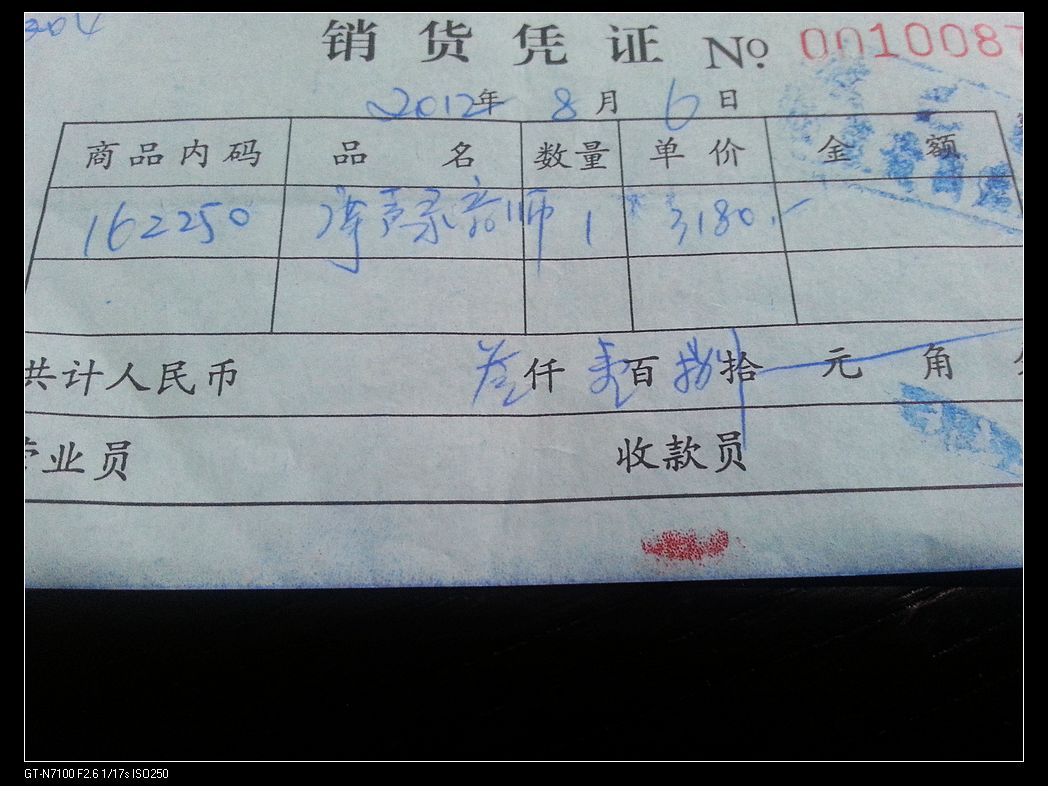 销货凭证 No. 0010087
2012年 8月 6日
商品内码 品名 数量 单价 金额
162250 1 3180.-
共计人民币 叁仟壹百捌拾 元 角
业员 收款员
GT-N7100 F2.6 1/17s ISO250